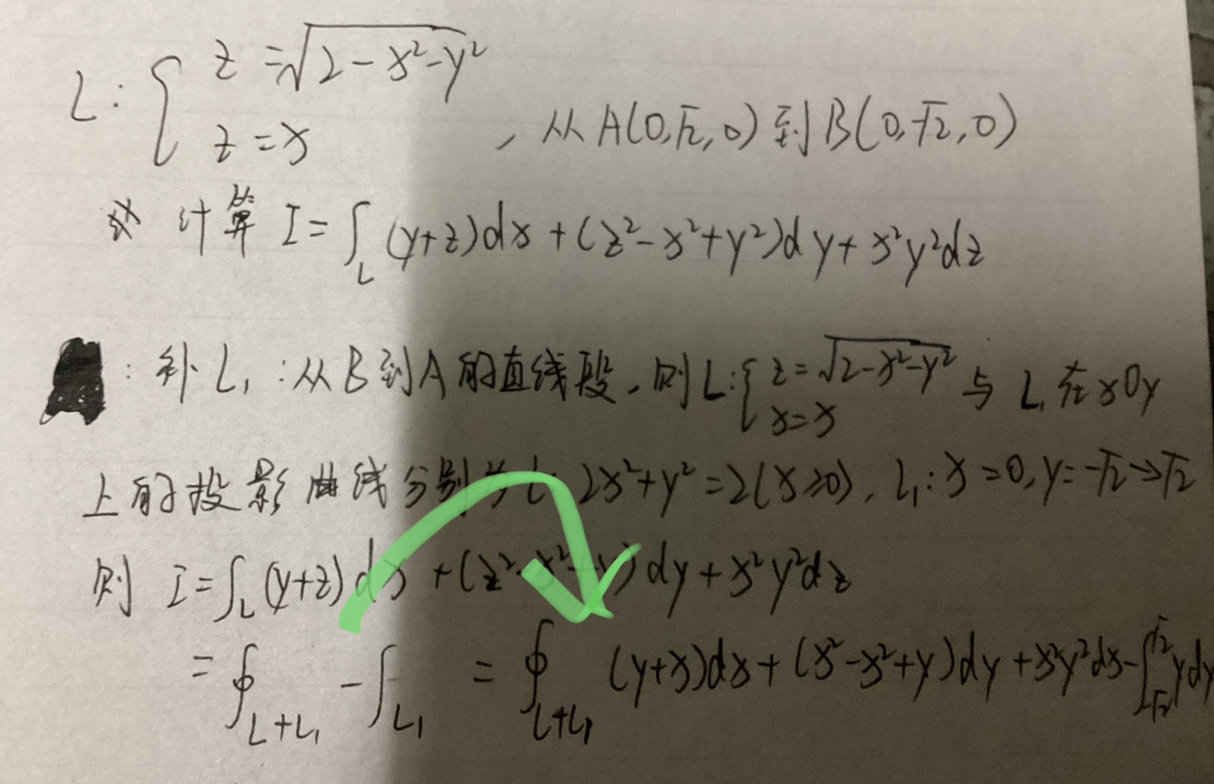 L: { z=√(2-x²-y²)
z=x , 从A(0,√2,0)到B(0,-√2,0)
计算 I=∫_L (y+z)dx+(z²-x²+y²)dy+x²y²dz
: 补L₁:从B到A的直线段,则L:{ z=√(2-x²-y²) 与 L₁在xOy
x=x
上的投影曲线分别为L: 2x²+y²=2(x≥0), L₁:x=0,y=-√2→√2
则 I=∫_L (y+z)dx+(z²-x²+y)dy+x²y²dz
=∮_{L+L₁} -∫_{L₁} =∮_{L+L₁} (y+x)dx+(x²-x²+y)dy+x²y²dx-∫_{-√2}^{√2} ydy